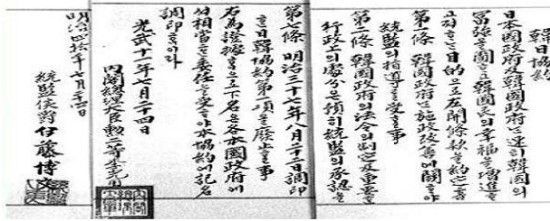 韓日協約
日本國政府及韓國政府는速히韓國의
富强을圖ᄒᆞ고韓國民의幸福을增進
고져ᄒᆞ는目的으로左開條款을約定홈
第一條 韓國政府는施政改善에關ᄒᆞ야
統監의指導를受ᄒᆞᆯ事
第二條 韓國政府의法令의制定及重要ᄒᆞᆫ
行政上의處分은預히統監의承認을
第七條 明治三十七年八月二十二日調印
ᄒᆞᆫ日韓協約第一項을廢止ᄒᆞᆯ事
右爲證據ᄒᆞᆷ으로下名은各本國政府에
셔相當ᄒᆞᆫ委任을受ᄒᆞ야本協約에記名
調印ᄒᆞᆷ이라
光武十一年七月二十四日
內閣總理大臣勳二等李完用
明治四十年七月二十四日
統監侯爵伊藤博文